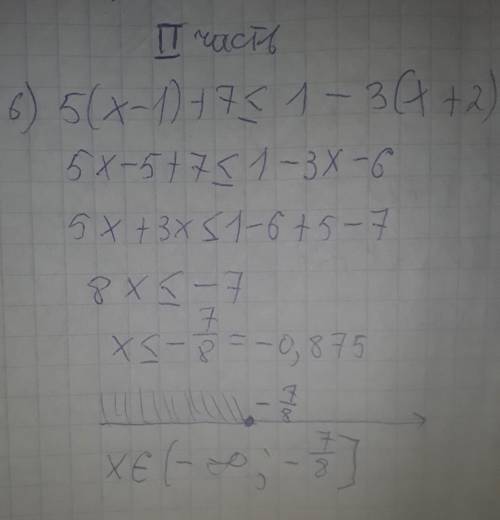 II часть
6) 5(x-1)+7≤ 1 - 3(x+2)
5x-5+7≤1-3x-6
5x+3x≤1-6+5-7
8x≤-7
x≤-7/8=-0,875
-7/8
x∈(-∞;-7/8]